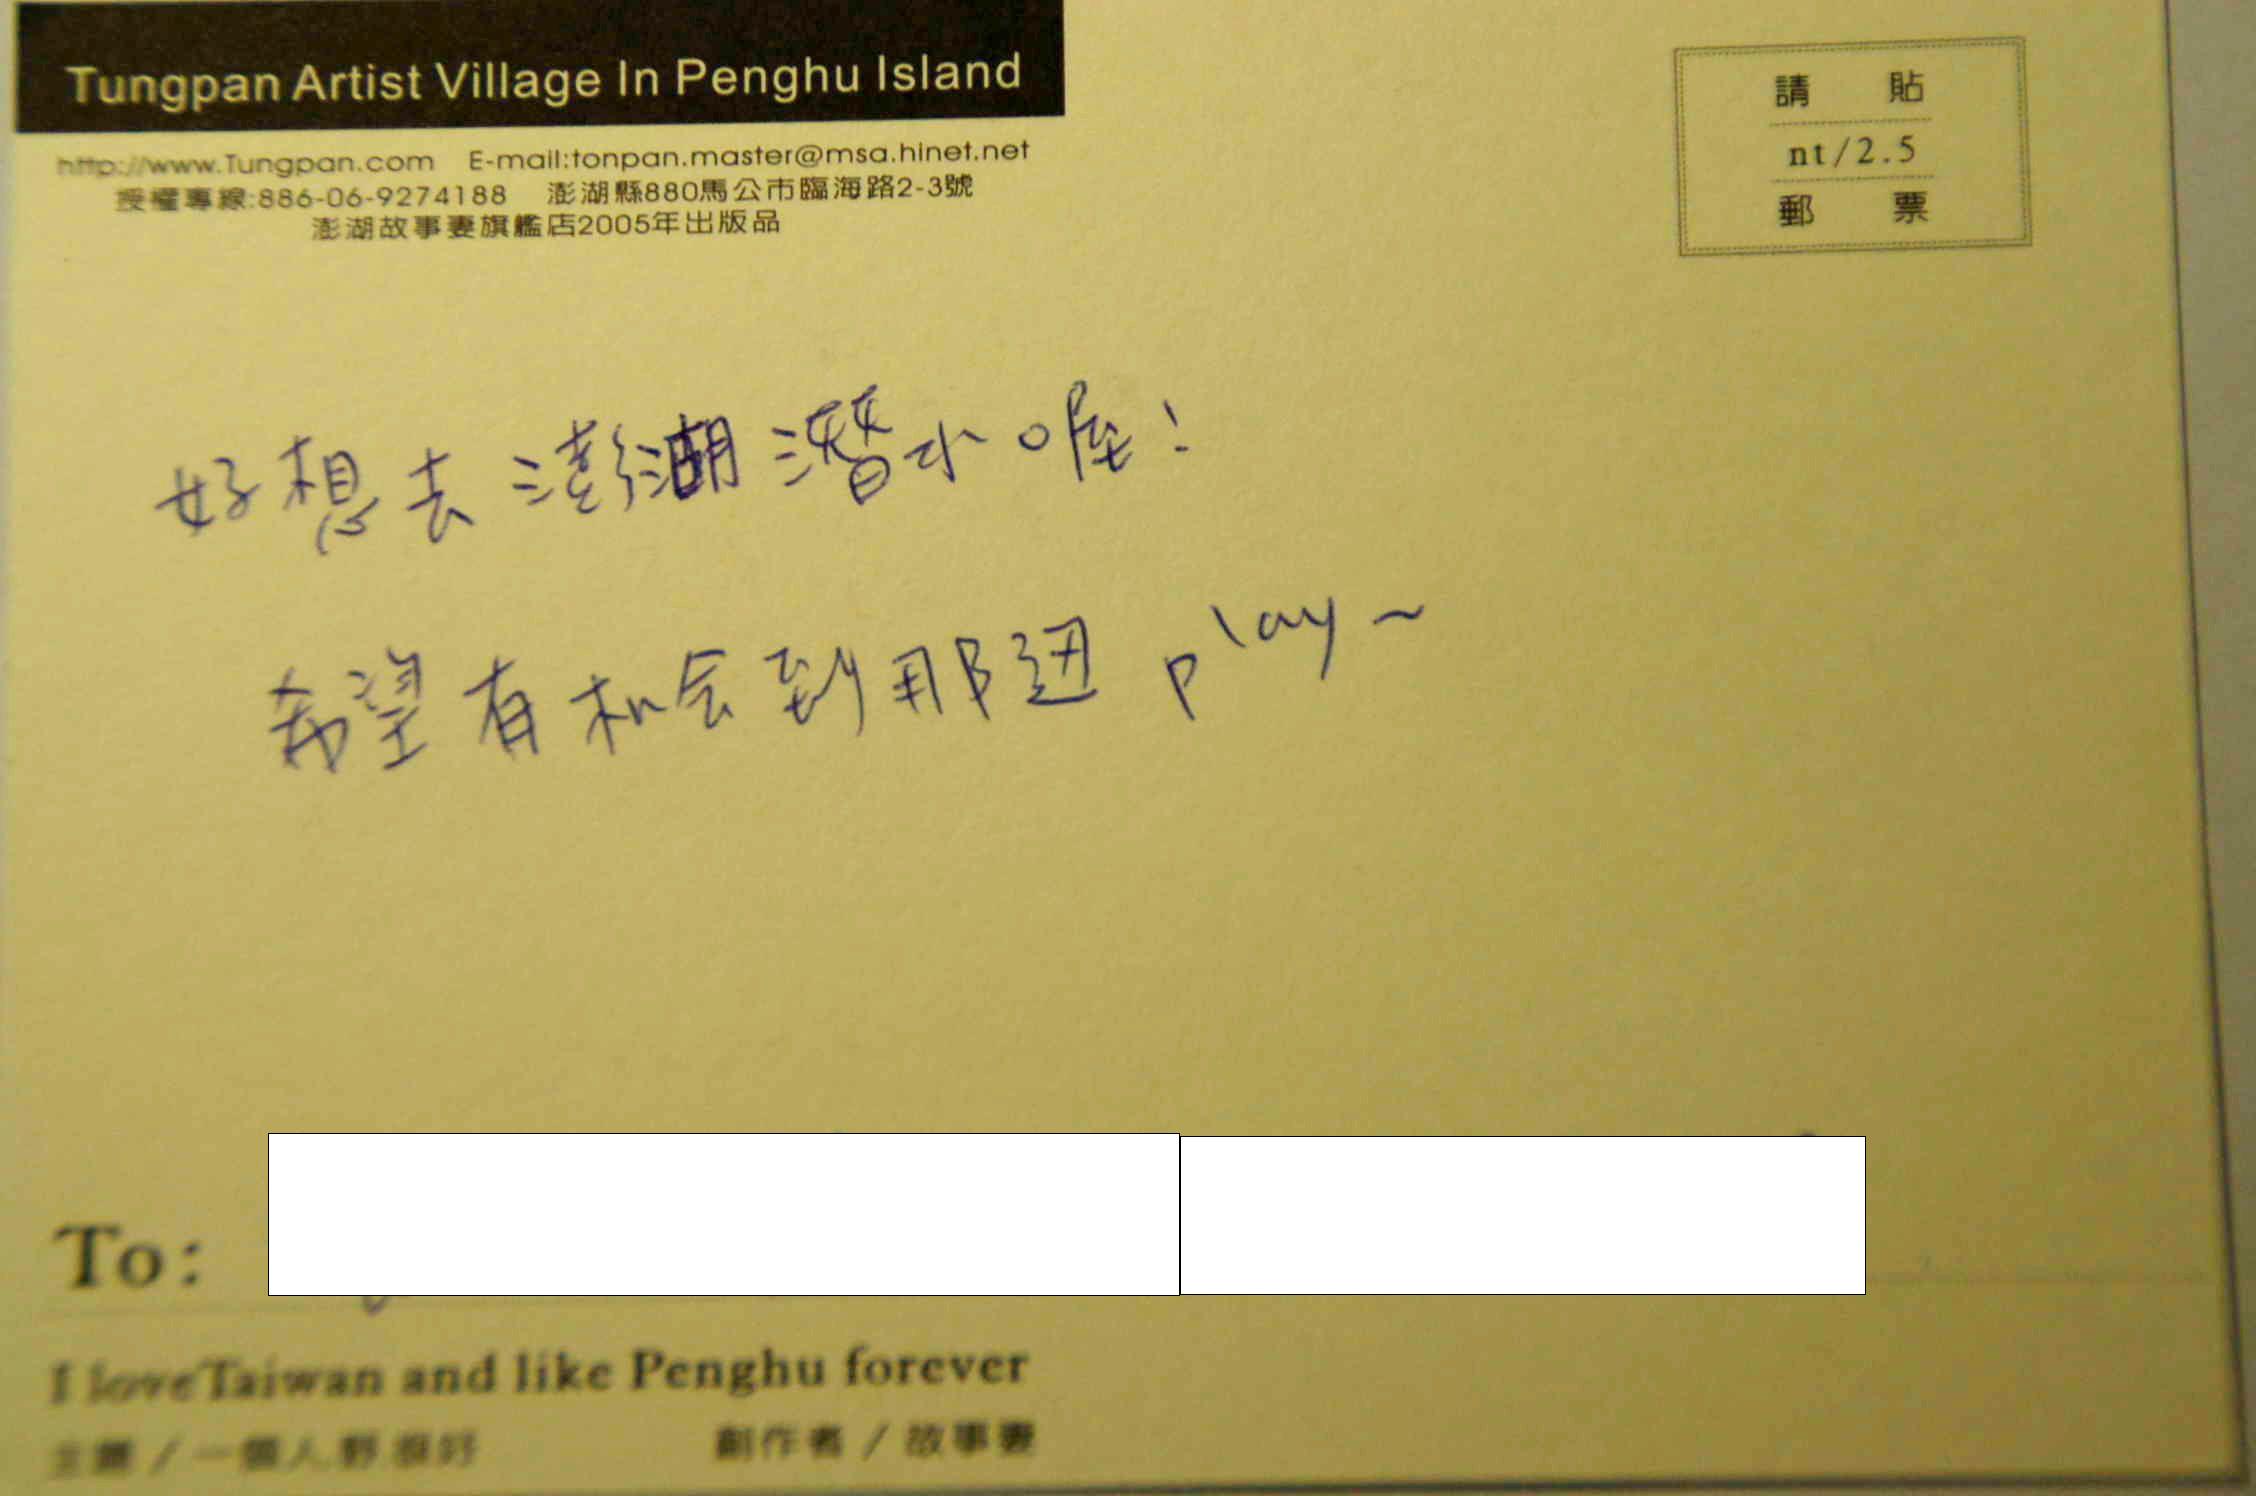 Tungpan Artist Village In Penghu Island
http://www.Tungpan.com E-mail:tonpan.master@msa.hinet.net
授權專線:886-06-9274188 澎湖縣880馬公市臨海路2-3號
澎湖故事妻旗艦店2005年出版品
請 貼
nt/2.5
郵 票
好想去澎湖潛水喔!
希望有机会到那迌 play~
To:
I love Taiwan and like Penghu forever
主題 / 一個人.野.很好 創作者 / 故事妻